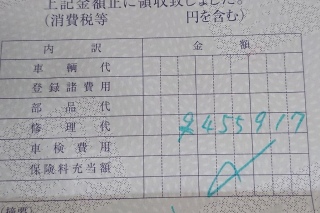 上記金額正に領収致しました。
(消費税等 円を含む)
内訳 金額
車輌代
登録諸費用
部品代
修理代 ¥455917
車検費用
保険料充当額
(摘要)